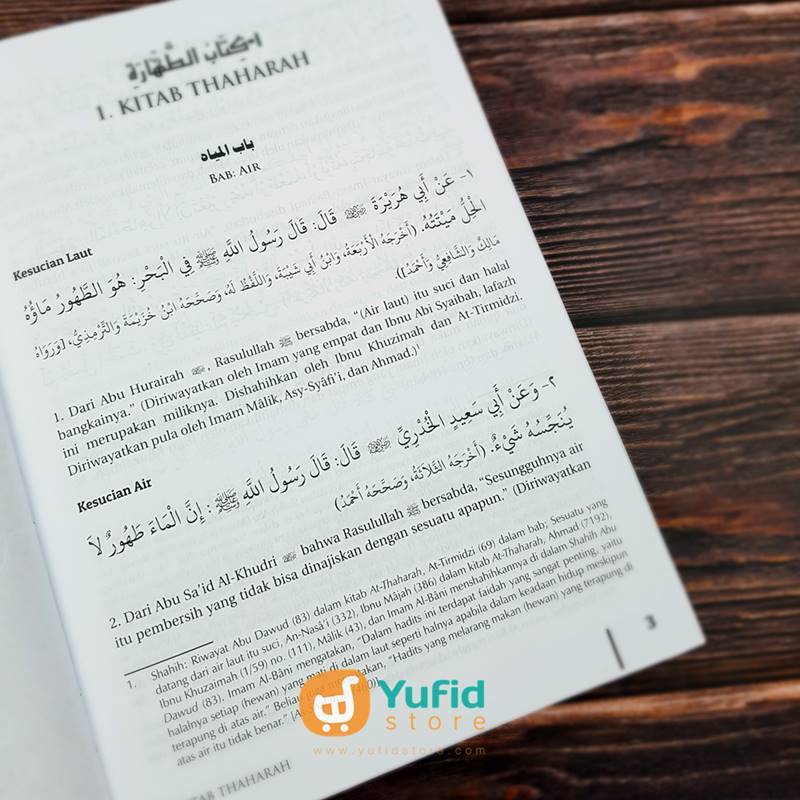 ١- كِتَابُ الطَّهَارَةِ
1. KITAB THAHARAH
باب المياه
BAB: AIR
Kesucian Laut
١- عَنْ أَبِي هُرَيْرَةَ ﵁ قَالَ: قَالَ رَسُولُ اللَّهِ ﷺ فِي الْبَحْرِ: هُوَ الطَّهُورُ مَاؤُهُ
الْحِلُّ مَيْتَتُهُ. (أَخْرَجَهُ الْأَرْبَعَةُ، وَابْنُ أَبِي شَيْبَةَ، وَاللَّفْظُ لَهُ، وَصَحَّحَهُ ابْنُ خُزَيْمَةَ وَالتِّرْمِذِيُّ، [وَرَوَاهُ
مَالِكٌ وَالشَّافِعِيُّ وَأَحْمَدُ])
1. Dari Abu Hurairah ﵁, Rasulullah ﷺ bersabda, “(Air laut) itu suci dan halal
bangkainya.” (Diriwayatkan oleh Imam yang empat dan Ibnu Abi Syaibah, lafazh
ini merupakan miliknya. Dishahihkan oleh Ibnu Khuzimah dan At-Tirmidzi.
Diriwayatkan pula oleh Imam Mâlik, Asy-Syâfi'i, dan Ahmad.)¹
Kesucian Air
٢- وَعَنْ أَبِي سَعِيدٍ الْخُدْرِيِّ ﵁ قَالَ: قَالَ رَسُولُ اللَّهِ ﷺ: إِنَّ الْمَاءَ طَهُورٌ لَا
يُنَجِّسُهُ شَيْءٌ. (أَخْرَجَهُ الثَّلَاثَةُ، وَصَحَّحَهُ أَحْمَدُ)
2. Dari Abu Sa'id Al-Khudri ﵁ bahwa Rasulullah ﷺ bersabda, “Sesungguhnya air
itu pembersih yang tidak bisa dinajiskan dengan sesuatu apapun.” (Diriwayatkan
1. Shahih: Riwayat Abu Dawud (83) dalam kitab At-Thaharah, At-Tirmidzi (69) dalam bab; Sesuatu yang
datang dari air laut itu suci, An-Nasâ'i (332), Ibnu Mâjah (386) dalam kitab At-Thaharah, Ahmad (7192),
Ibnu Khuzaimah (1/59) no. (111), Mâlik (43), dan Imam Al-Bâni menshahihkannya di dalam Shahih Abu
Dawud (83). Imam Al-Bâni mengatakan, “Dalam hadits ini terdapat faidah yang sangat penting, yaitu
halalnya setiap (hewan) yang mati di dalam laut seperti halnya apabila dalam keadaan hidup meskipun
terapung di atas air.” Beliau juga mengatakan, “Hadits yang melarang makan (hewan) yang terapung di
atas air itu tidak benar.”
3
TAB THAHARAH
Yufid
store
www.yufidstore.com